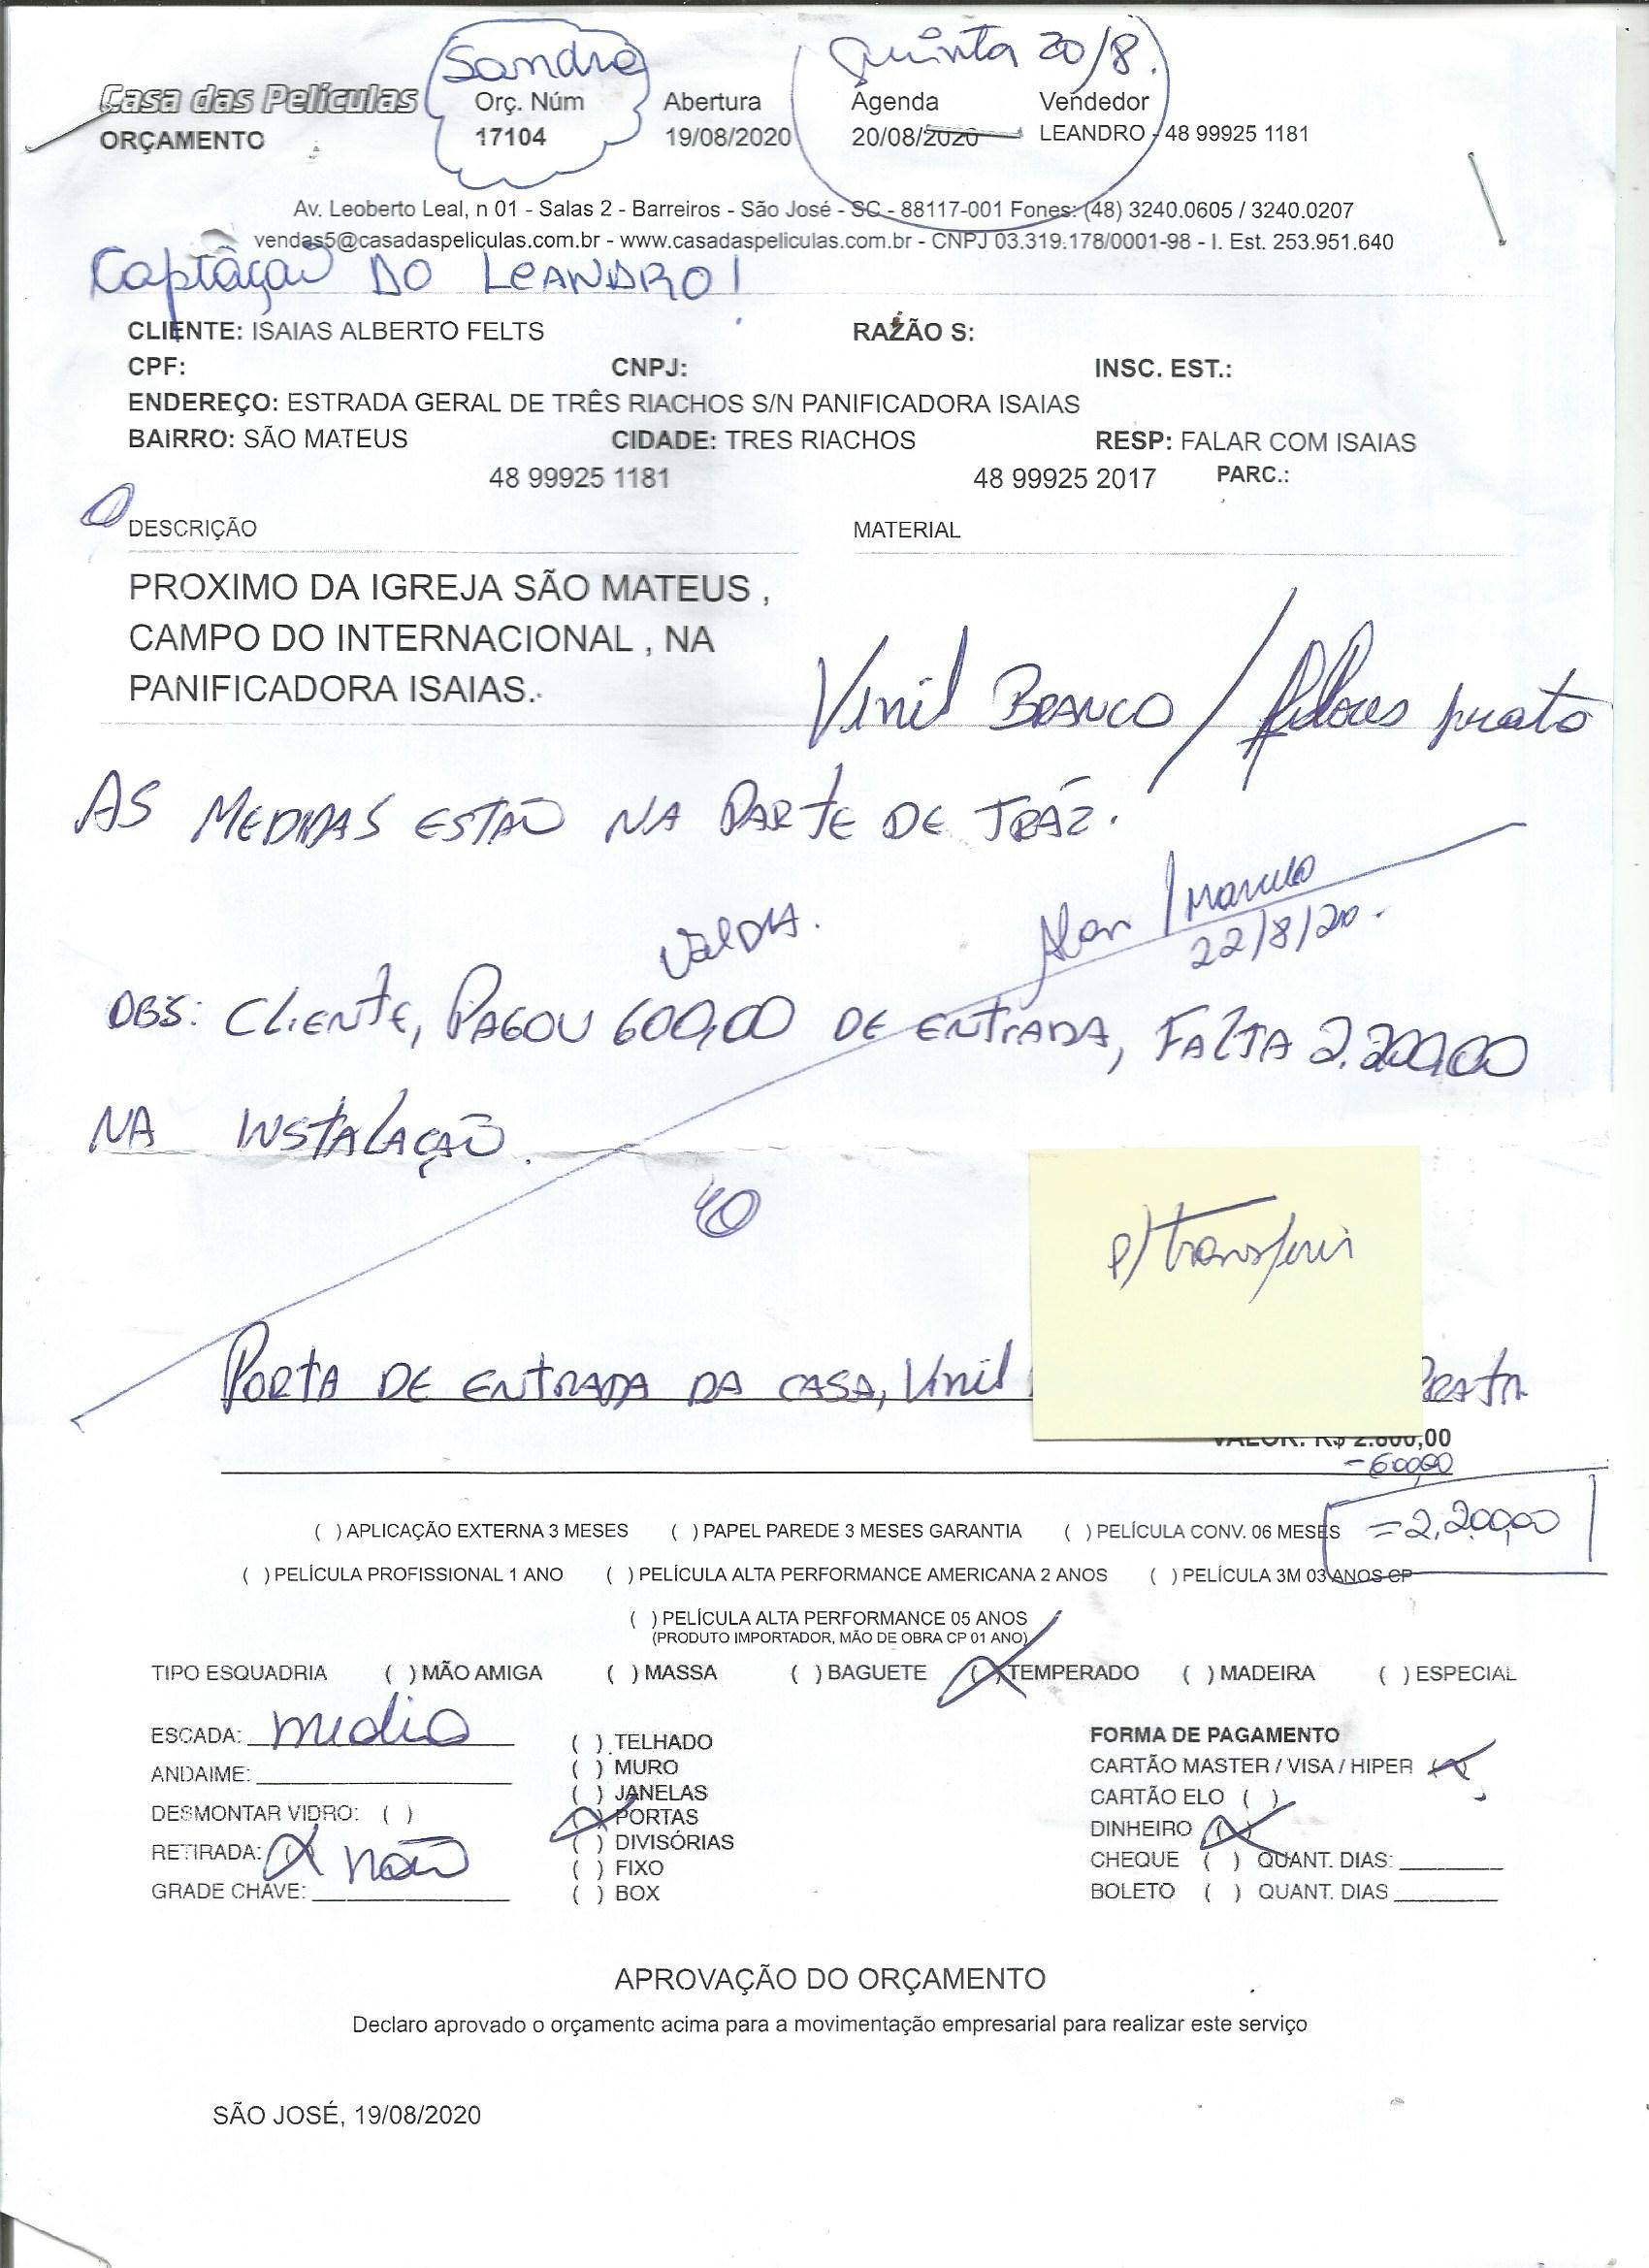 Sandro
Quinta 20/8.
Casa das Películas
Orç. Núm Abertura Agenda Vendedor
ORÇAMENTO 17104 19/08/2020 20/08/2020 LEANDRO - 48 99925 1181
Av. Leoberto Leal, n 01 - Salas 2 - Barreiros - São José - SC - 88117-001 Fones: (48) 3240.0605 / 3240.0207
vendas5@casadaspeliculas.com.br - www.casadaspeliculas.com.br - CNPJ 03.319.178/0001-98 - I. Est. 253.951.640
Captação DO LEANDRO!
CLIENTE: ISAIAS ALBERTO FELTS RAZÃO S:
CPF: CNPJ: INSC. EST.:
ENDEREÇO: ESTRADA GERAL DE TRÊS RIACHOS S/N PANIFICADORA ISAIAS
BAIRRO: SÃO MATEUS CIDADE: TRES RIACHOS RESP: FALAR COM ISAIAS
48 99925 1181 48 99925 2017 PARC.:
DESCRIÇÃO MATERIAL
PROXIMO DA IGREJA SÃO MATEUS ,
CAMPO DO INTERNACIONAL , NA
PANIFICADORA ISAIAS.
Vinil BRANCO / prata
AS MEDIDAS ESTÃO NA PARTE DE TRÁZ.
22/8/20.
OBS: CLIENTE, PAGOU 600,00 DE ENTRADA, FALTA 2.200,00
NA INSTALAÇÃO.
p/ transferir
PORTA DE ENTRADA DA CASA, Vinil PRATA
VALOR: R$ 2.800,00
- 600,00
= 2.200,00
( ) APLICAÇÃO EXTERNA 3 MESES ( ) PAPEL PAREDE 3 MESES GARANTIA ( ) PELÍCULA CONV. 06 MESES
( ) PELÍCULA PROFISSIONAL 1 ANO ( ) PELÍCULA ALTA PERFORMANCE AMERICANA 2 ANOS ( ) PELÍCULA 3M 03 ANOS CP
( ) PELÍCULA ALTA PERFORMANCE 05 ANOS
(PRODUTO IMPORTADOR, MÃO DE OBRA CP 01 ANO)
TIPO ESQUADRIA ( ) MÃO AMIGA ( ) MASSA ( ) BAGUETE (X) TEMPERADO ( ) MADEIRA ( ) ESPECIAL
ESCADA: media
ANDAIME:
DESMONTAR VIDRO: ( )
RETIRADA: (X) não
GRADE CHAVE:
( ) TELHADO
( ) MURO
( ) JANELAS
(X) PORTAS
( ) DIVISÓRIAS
( ) FIXO
( ) BOX
FORMA DE PAGAMENTO
CARTÃO MASTER / VISA / HIPER (X)
CARTÃO ELO ( )
DINHEIRO (X)
CHEQUE ( ) QUANT. DIAS:
BOLETO ( ) QUANT. DIAS
APROVAÇÃO DO ORÇAMENTO
Declaro aprovado o orçamento acima para a movimentação empresarial para realizar este serviço
SÃO JOSÉ, 19/08/2020